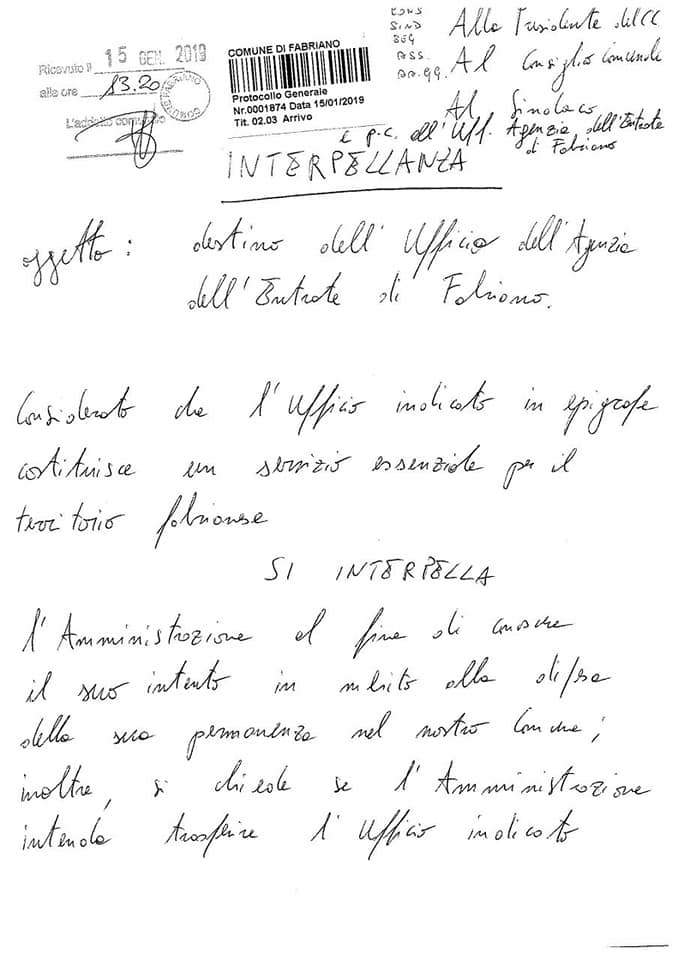 Ricevuto il 15 GEN. 2019
alle ore 13.20
L'addetto
COMUNE DI FABRIANO
Protocollo Generale
Nr.0001874 Data 15/01/2019
Tit. 02.03 Arrivo
CONS
SIND
SEG
ASS.
AA.GG.
Alla Presidente del CC
Al Consiglio Comunale
Al Sindaco
e p.c. all'Uff. Agenzia dell'Entrate
di Fabriano
INTERPELLANZA
oggetto: destino dell'Ufficio dell'Agenzia
dell'Entrate di Fabriano.
Considerato che l'Ufficio indicato in epigrafe
costituisce un servizio essenziale per il
territorio fabrianese
SI INTERPELLA
l'Amministrazione al fine di conoscere
il suo intento in merito alla difesa
della sua permanenza nel nostro Comune;
inoltre, si chiede se l'Amministrazione
intenda trasferire l'Ufficio indicato